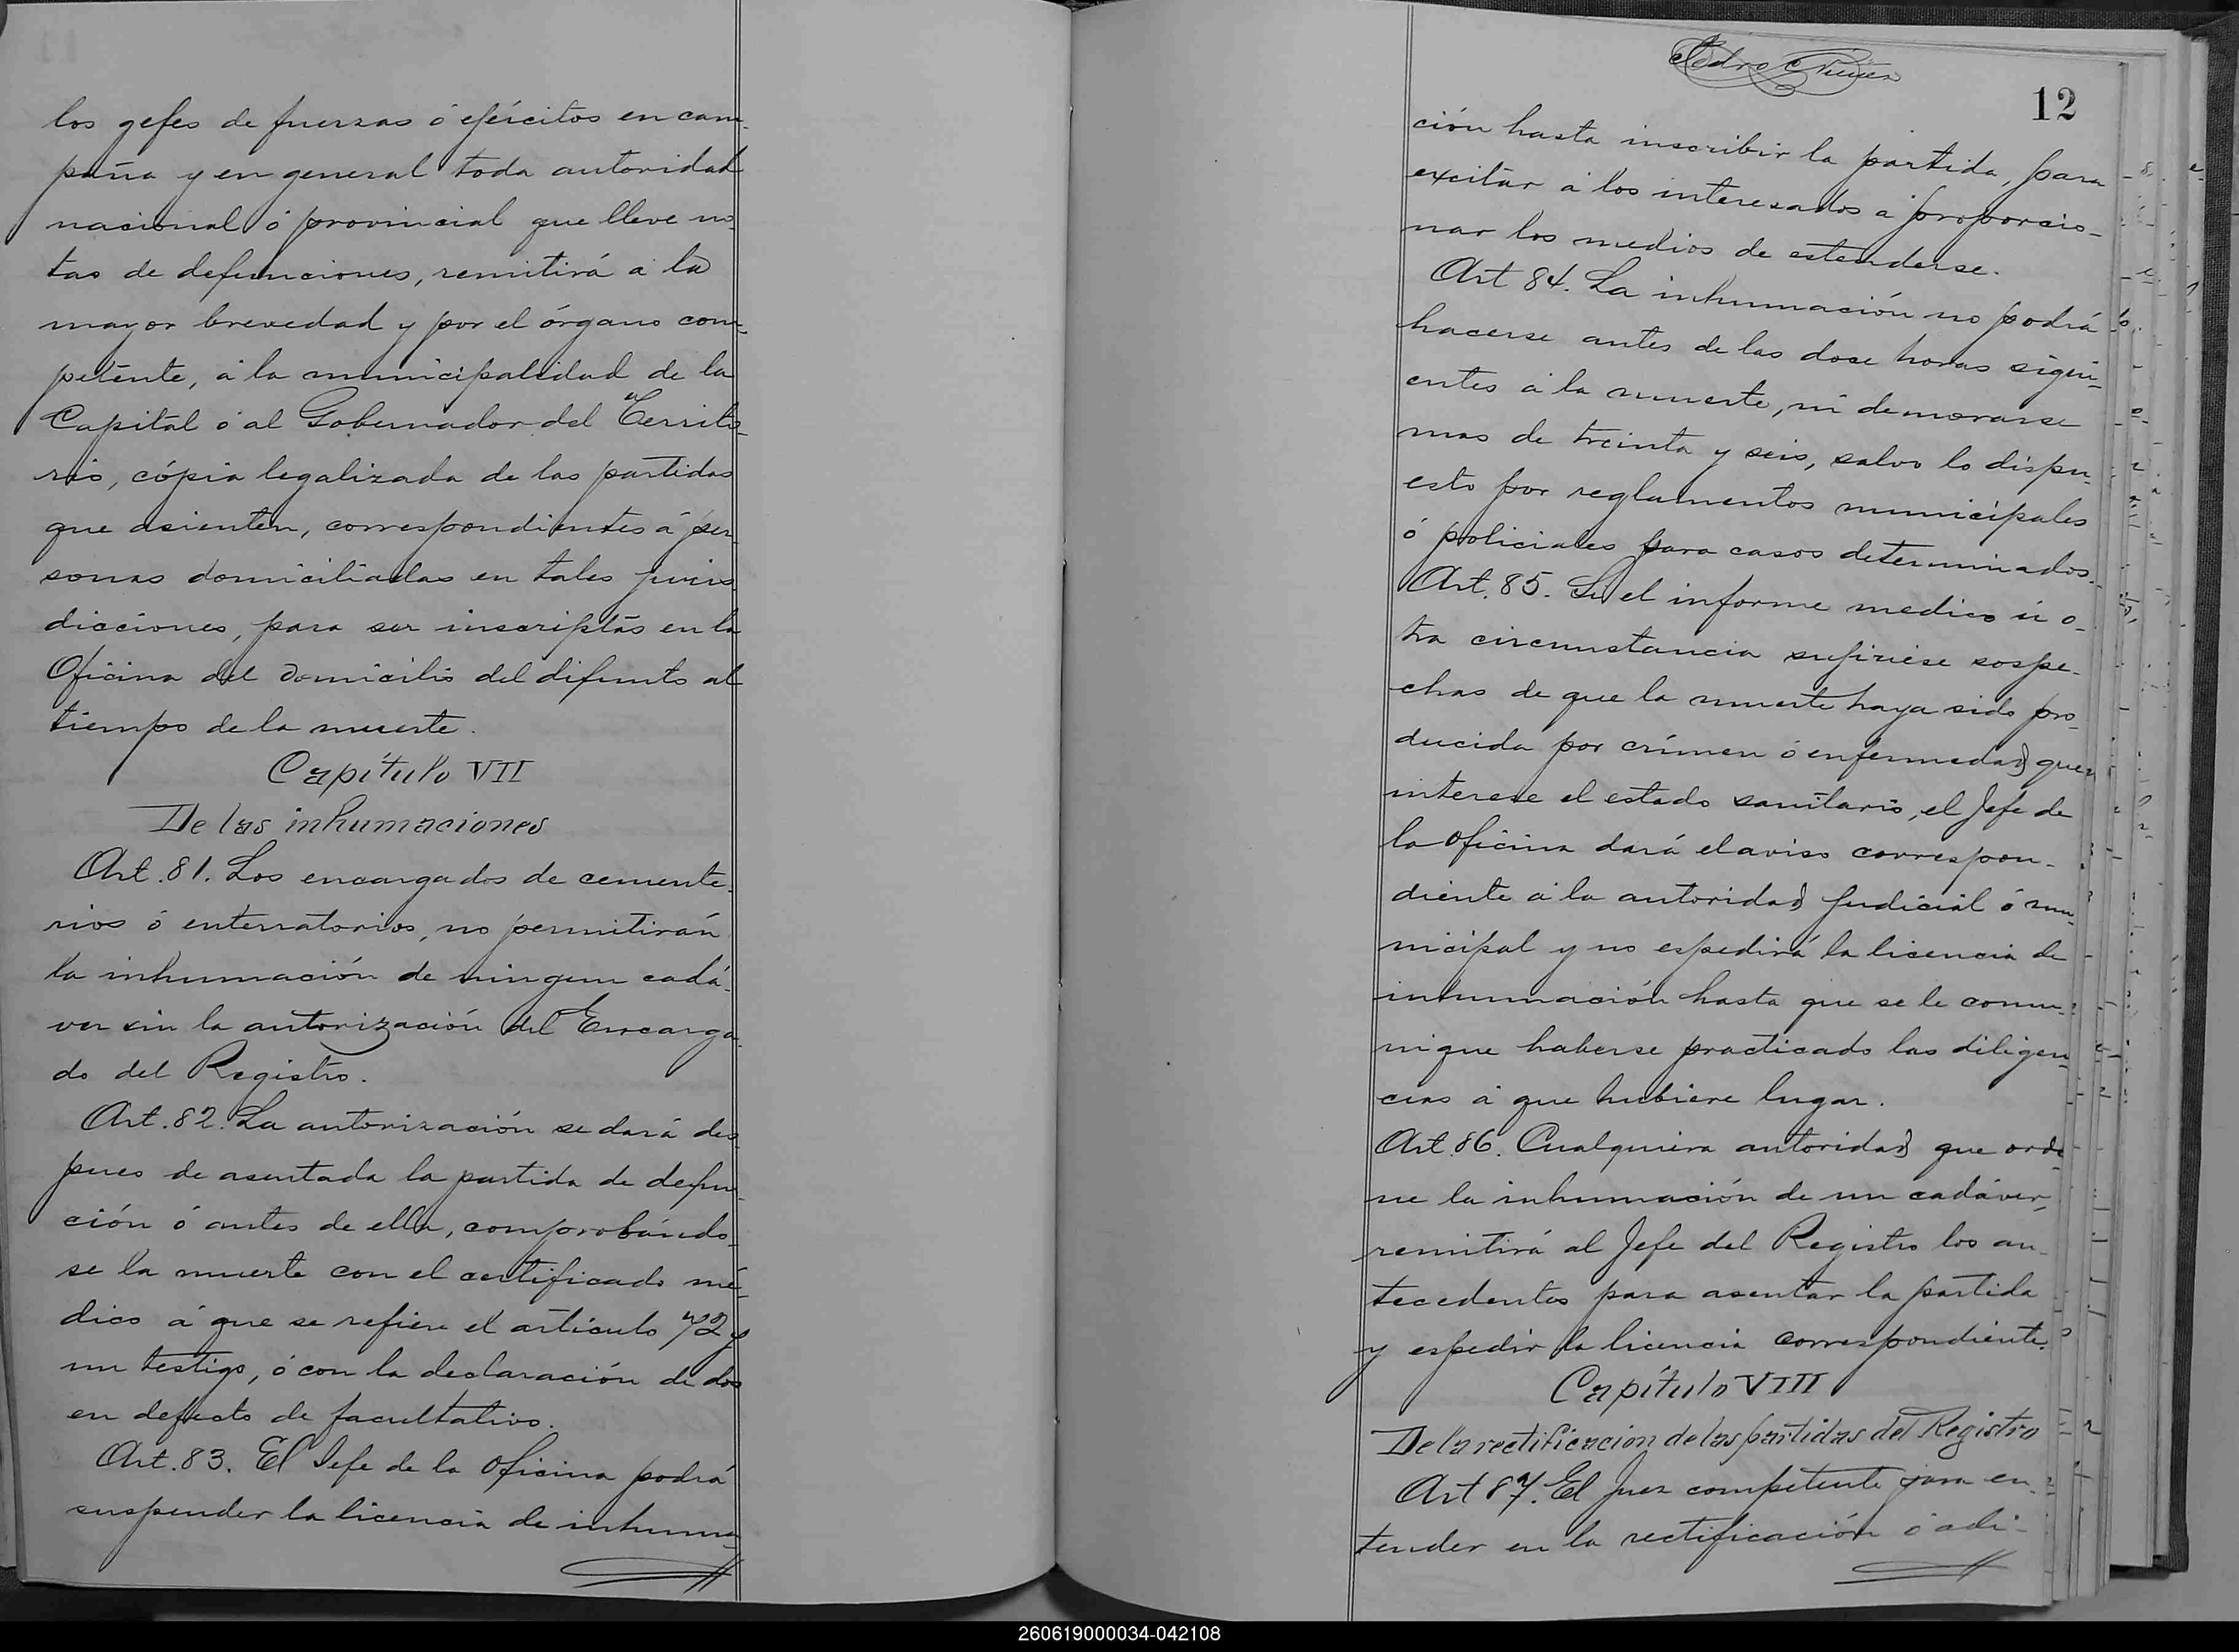 los gefes de fuerzas ó ejércitos en cam-
paña y en general toda autoridad
nacional ó provincial que lleve no-
tas de defunciones, remitirá á la
mayor brevedad y por el órgano com-
petente, á la municipalidad de la
Capital ó al Gobernador del Territo-
rio, cópia legalizada de las partidas
que asienten, correspondientes á per-
sonas domiciliadas en tales juris-
dicciones, para ser inscriptas en la
Oficina del domicilio del difunto al
tiempo de la muerte.
Capítulo VII
De las inhumaciones
Art. 81. Los encargados de cemente-
rios ó enterratorios, no permitirán
la inhumación de ningun cadá-
ver sin la autorización del Encarga-
do del Registro.
Art. 82. La autorización se dará des-
pues de asentada la partida de defun-
ción ó antes de ella, comprobándo-
se la muerte con el certificado mé-
dico á que se refiere el artículo 72 y
un testigo, ó con la declaración de dos
en defecto de facultativo.
Art. 83. El Jefe de la Oficina podrá
suspender la licencia de inhuma-
Pedro
12
ción hasta inscribir la partida, para
excitar á los interesados á proporcio-
nar los medios de estenderse.
Art 84. La inhumación no podrá
hacerse antes de las doce horas sigui-
entes á la muerte, ni demorarse
mas de treinta y seis, salvo lo dispu-
esto por reglamentos municipales
ó policiales para casos determinados.
Art. 85. Si el informe medico ú o-
tra circunstancia sujiriese sospe-
chas de que la muerte haya sido pro-
ducida por crímen ó enfermedad que
interese el estado sanitario, el Jefe de
la oficina dará el aviso correspon-
diente á la autoridad Judicial ó mu-
nicipal y no espedirá la licencia de
inhumación hasta que se le comu-
nique haberse practicado las diligen-
cias á que hubiere lugar.
Art. 86. Cualquiera autoridad que orde-
ne la inhumación de un cadáver,
remitirá al Jefe del Registro los an-
tecedentes para asentar la partida
y espedir la licencia correspondiente.
Capítulo VIII
De la rectificacion de las partidas del Registro
Art 87. El Juez competente para en-
tender en la rectificación ó adi-
260619000034-042108